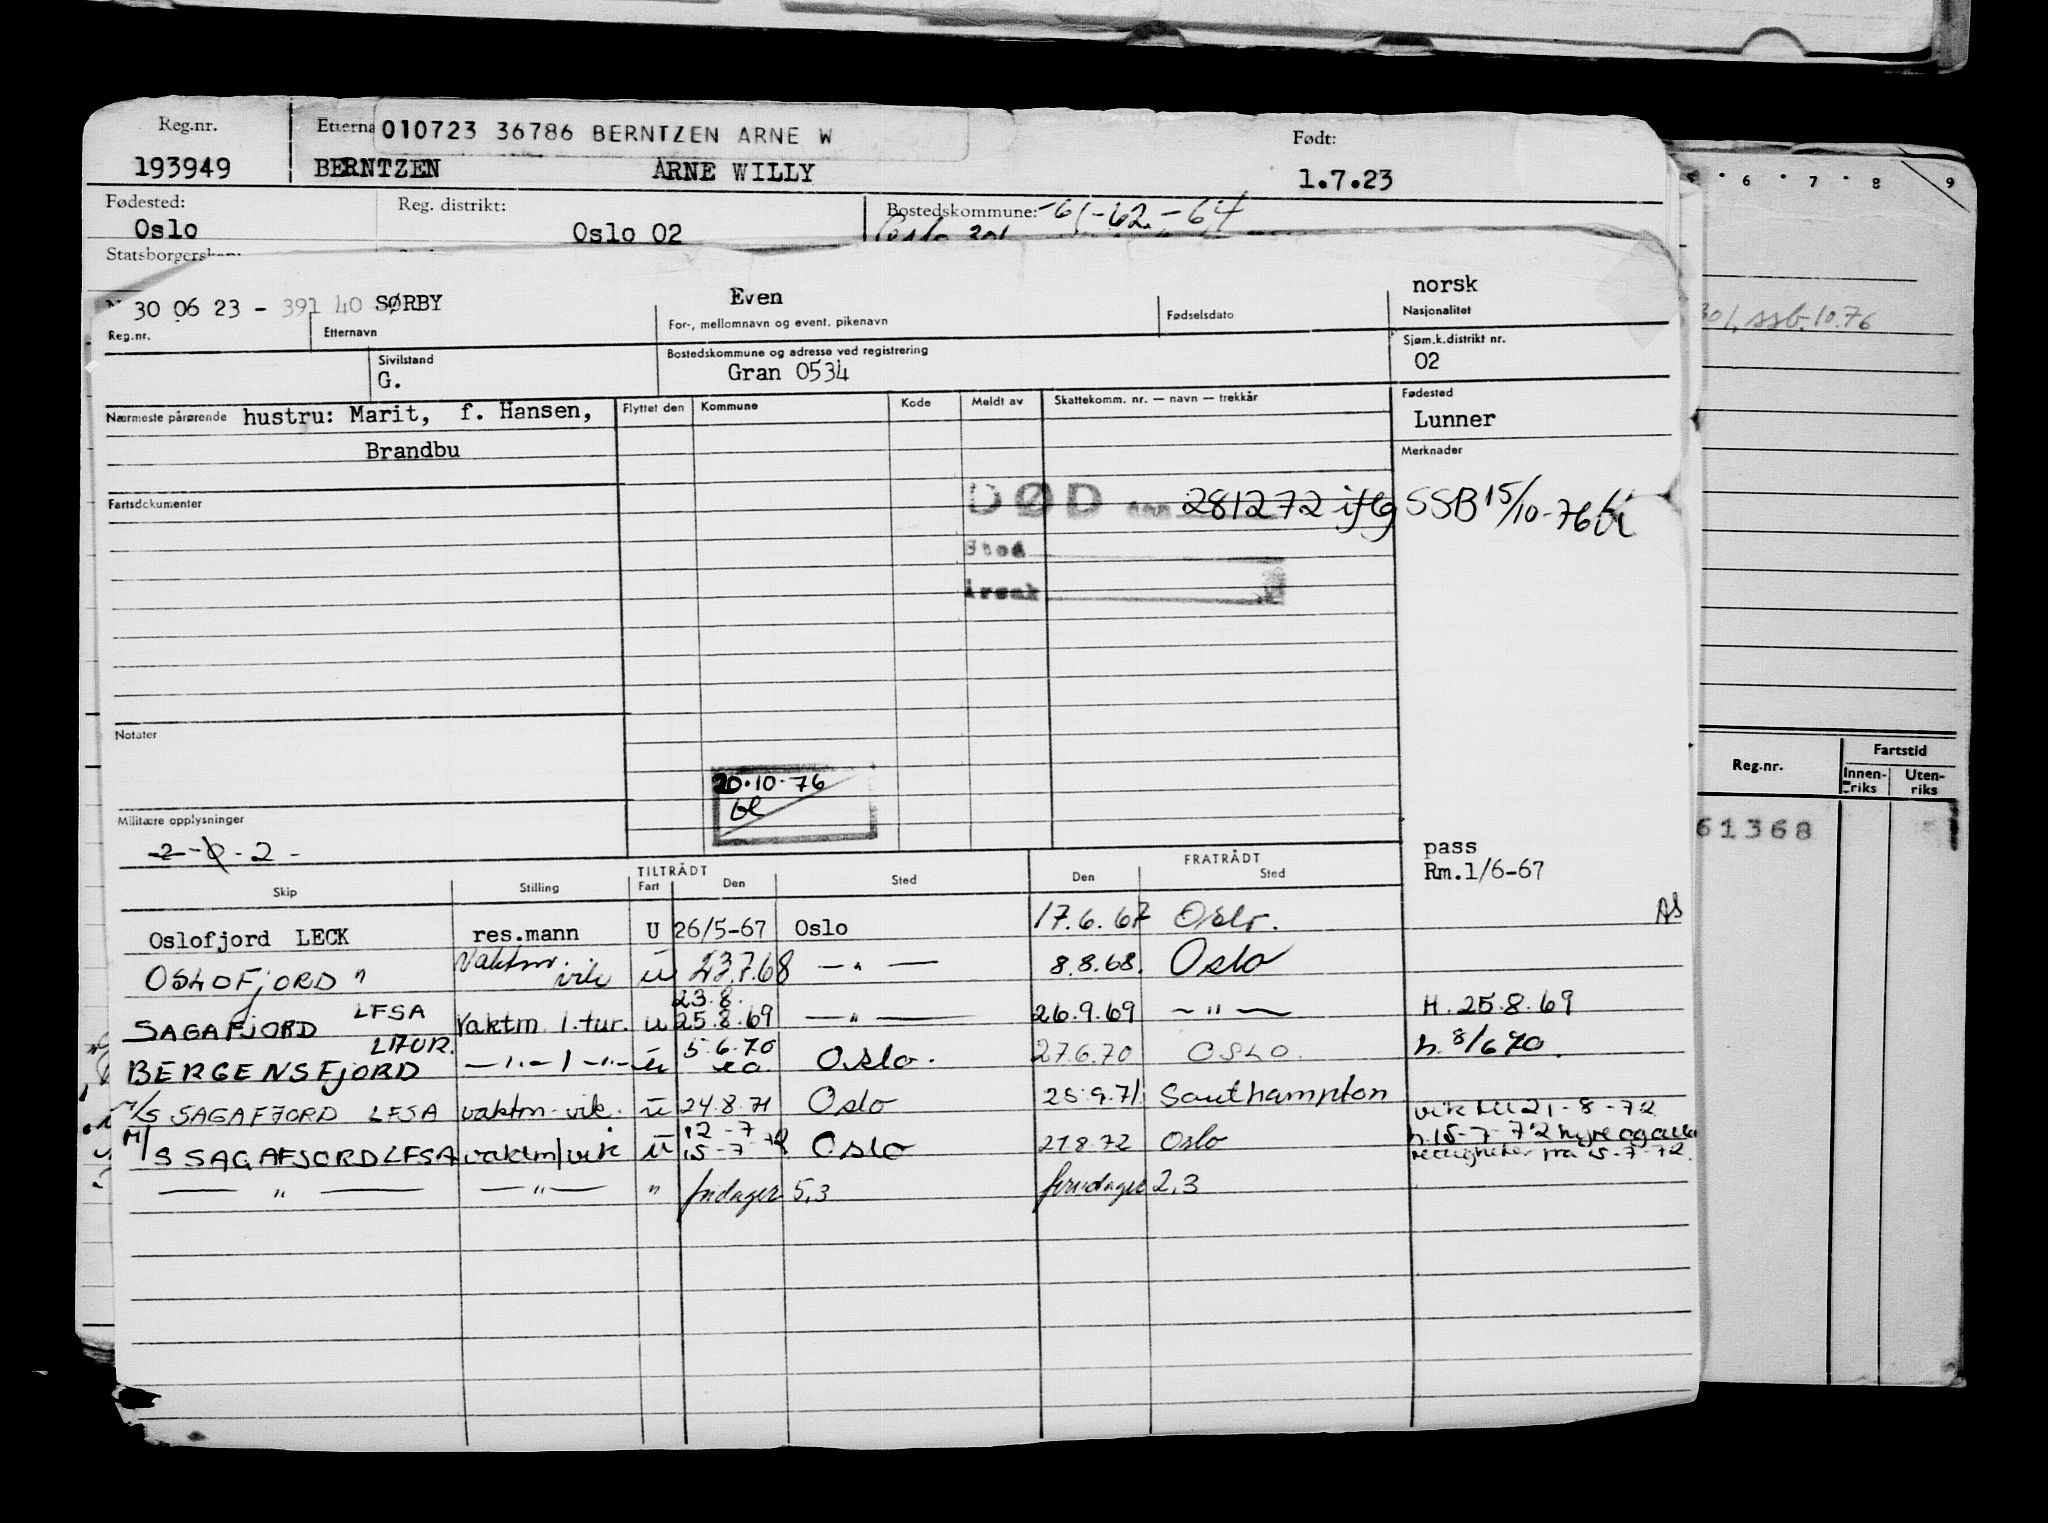 Reg.nr. Etterna 010723 36786 BERNTZEN ARNE W Født:
193949 BERNTZEN ARNE WILLY 1.7.23
Fødested: Reg. distrikt: Bostedskommune: -61-62-64
Oslo Oslo 02 Oslo 301
Statsborgerskap:
30 06 23 - 391 40 SØRBY Even norsk
Reg.nr. Etternavn For-, mellomnavn og event. pikenavn Fødselsdato Nasjonalitet
Sivilstand Bostedskommune og adresse ved registrering Sjøm.k.distrikt nr.
G. Gran 0534 02
Nærmeste pårørende hustru: Marit, f. Hansen, Flyttet den Kommune Kode Meldt av Skattekomm. nr. — navn — trekkår Fødested
Lunner
Brandbu Merknader
Fartsdokumenter DØD den 281272 iflg SSB 15/10-76
Sted
Årsak
Notater
20.10.76
Militære opplysninger
-2-0-2-
pass
Rm.1/6-67
TILTRÅDT FRATRÅDT
Skip Stilling Fart Den Sted Den Sted
Oslofjord LECK res.mann U 26/5-67 Oslo 17.6.67 Oslo. AS
OSLOFJORD " Vaktm. vik u 23.7.68 — " — 8.8.68. Oslo
23.8.
SAGAFJORD LFSA Vaktm. 1.tur. u 25.8.69 — " — 26.9.69 — " — H. 25.8.69
BERGENSFJORD — " — 1 — " — u 5.6.70 Oslo. 27.6.70 OSLO. h. 8/6 70.
M/S SAGAFJORD LFSA vaktm. vik. u 24.8.71 Oslo 25.9.71. Southampton
vik til 21-8-72
12-7
M/S SAGAFJORD LFSA vaktm/vik u 15-7-72 Oslo 21.8.72 Oslo h.15-7-72 hyre og alle
rettigheter fra 15-7-72.
— " — — " — " fridager 5,3 feriedager 2,3
5 6 7 8 9
301, ssb. 10.76
Reg.nr. Fartstid
Innen-riks Uten-riks
61368